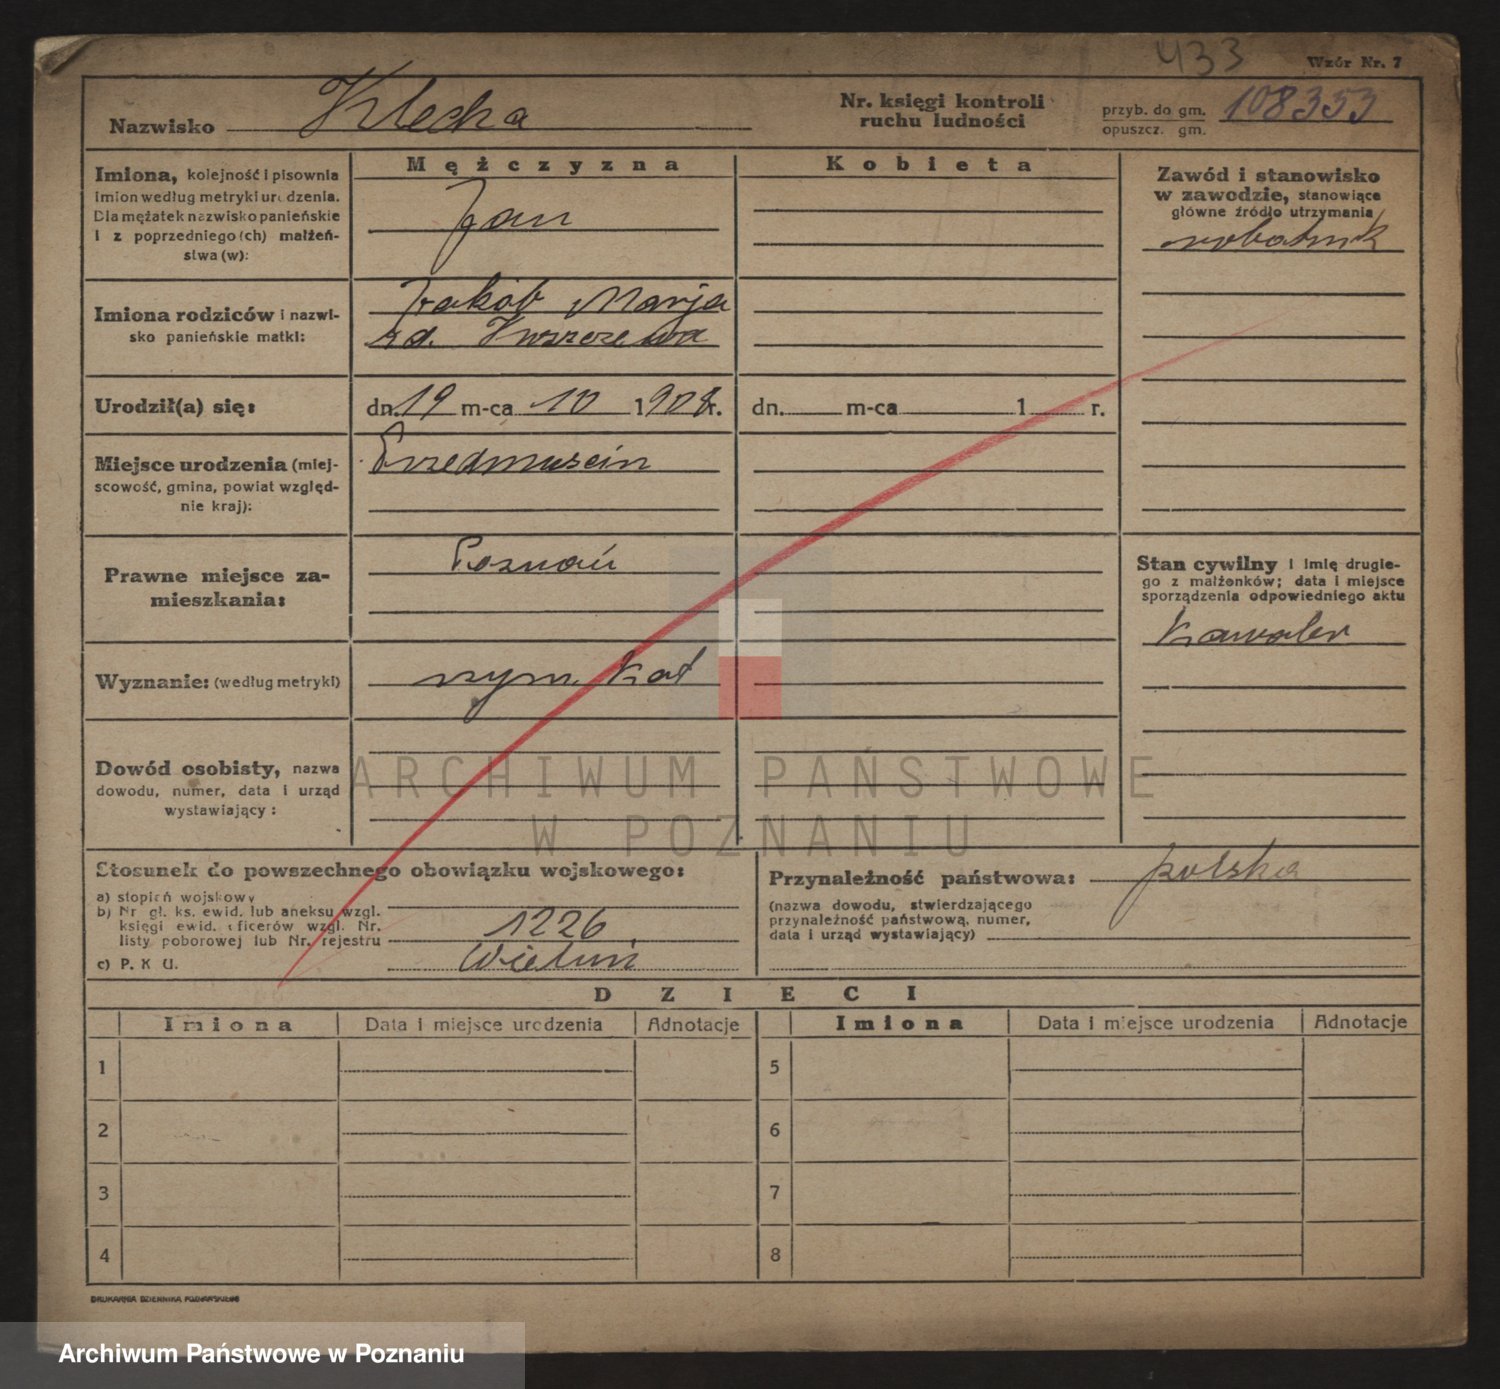 433
Wzór Nr. 7
Nazwisko Klecka
Nr. księgi kontroli
ruchu ludności
przyb. do gm. 108353
opuszcz. gm.
Mężczyzna
Kobieta
Imiona, kolejność i pisownia
imion według metryki urodzenia.
Dla mężatek nazwisko panieńskie
i z poprzedniego (ch) małżeń-
stwa (w):
Jan
Zawód i stanowisko
w zawodzie, stanowiące
główne źródło utrzymania
robotnik
Imiona rodziców i nazwi-
sko panieńskie matki:
Jakób Marja
zd.
Urodził(a) się:
dn. 19 m-ca 10 1908 r.
dn. m-ca 1 r.
Miejsce urodzenia (miej-
scowość, gmina, powiat względ-
nie kraj):
Przedmuścin
Prawne miejsce za-
mieszkania:
Poznań
Stan cywilny i imię drugie-
go z małżonków; data i miejsce
sporządzenia odpowiedniego aktu
kawaler
Wyznanie: (według metryki)
rzym. kat
Dowód osobisty, nazwa
dowodu, numer, data i urząd
wystawiający:
ARCHIWUM PAŃSTWOWE
W POZNANIU
Stosunek do powszechnego obowiązku wojskowego:
a) stopień wojskowy
b) Nr gł. ks. ewid. lub aneksu wzgl.
księgi ewid. oficerów wzgl. Nr.
listy poborowej lub Nr. rejestru
1226
c) P. K U.
Wieluń
Przynależność państwowa: polska
(nazwa dowodu, stwierdzającego
przynależność państwową, numer,
data i urząd wystawiający)
DZIECI
Imiona Data i miejsce urodzenia Adnotacje Imiona Data i miejsce urodzenia Adnotacje
1 5
2 6
3 7
4 8
DRUKARNIA DZIENNIKA POZNAŃSKIEGO
Archiwum Państwowe w Poznaniu